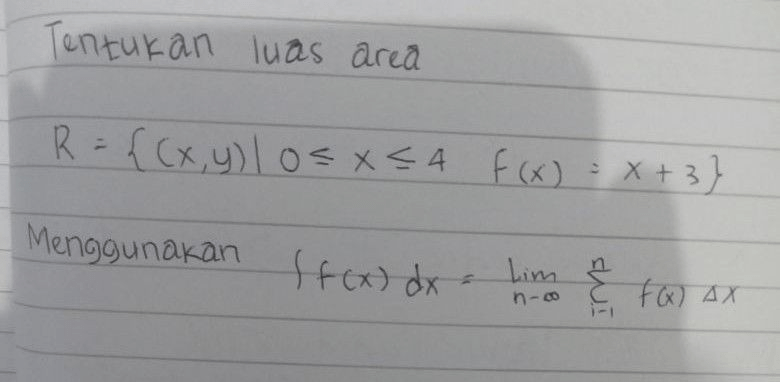 Tentukan luas area
R = {(x,y) | 0 ≤ x ≤ 4 f(x) = x + 3}
Menggunakan ∫ f(x) dx = lim n-∞ n Σ i-1 f(x) Δx